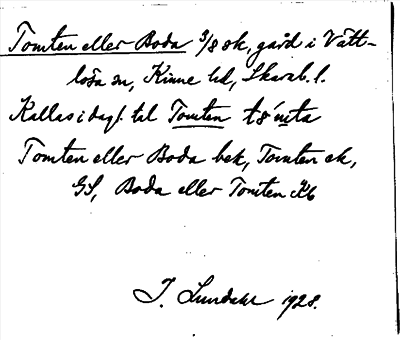 Tomten eller Boda 3/8 sk, gård i Vätt-
lösa sn, Kinne hd, Skarab. l.
Kallas i dagl. tal Tomten
Tomten eller Boda bek, Tomten ek,
GS, Boda eller Tomten
I. Lundahl 1928.